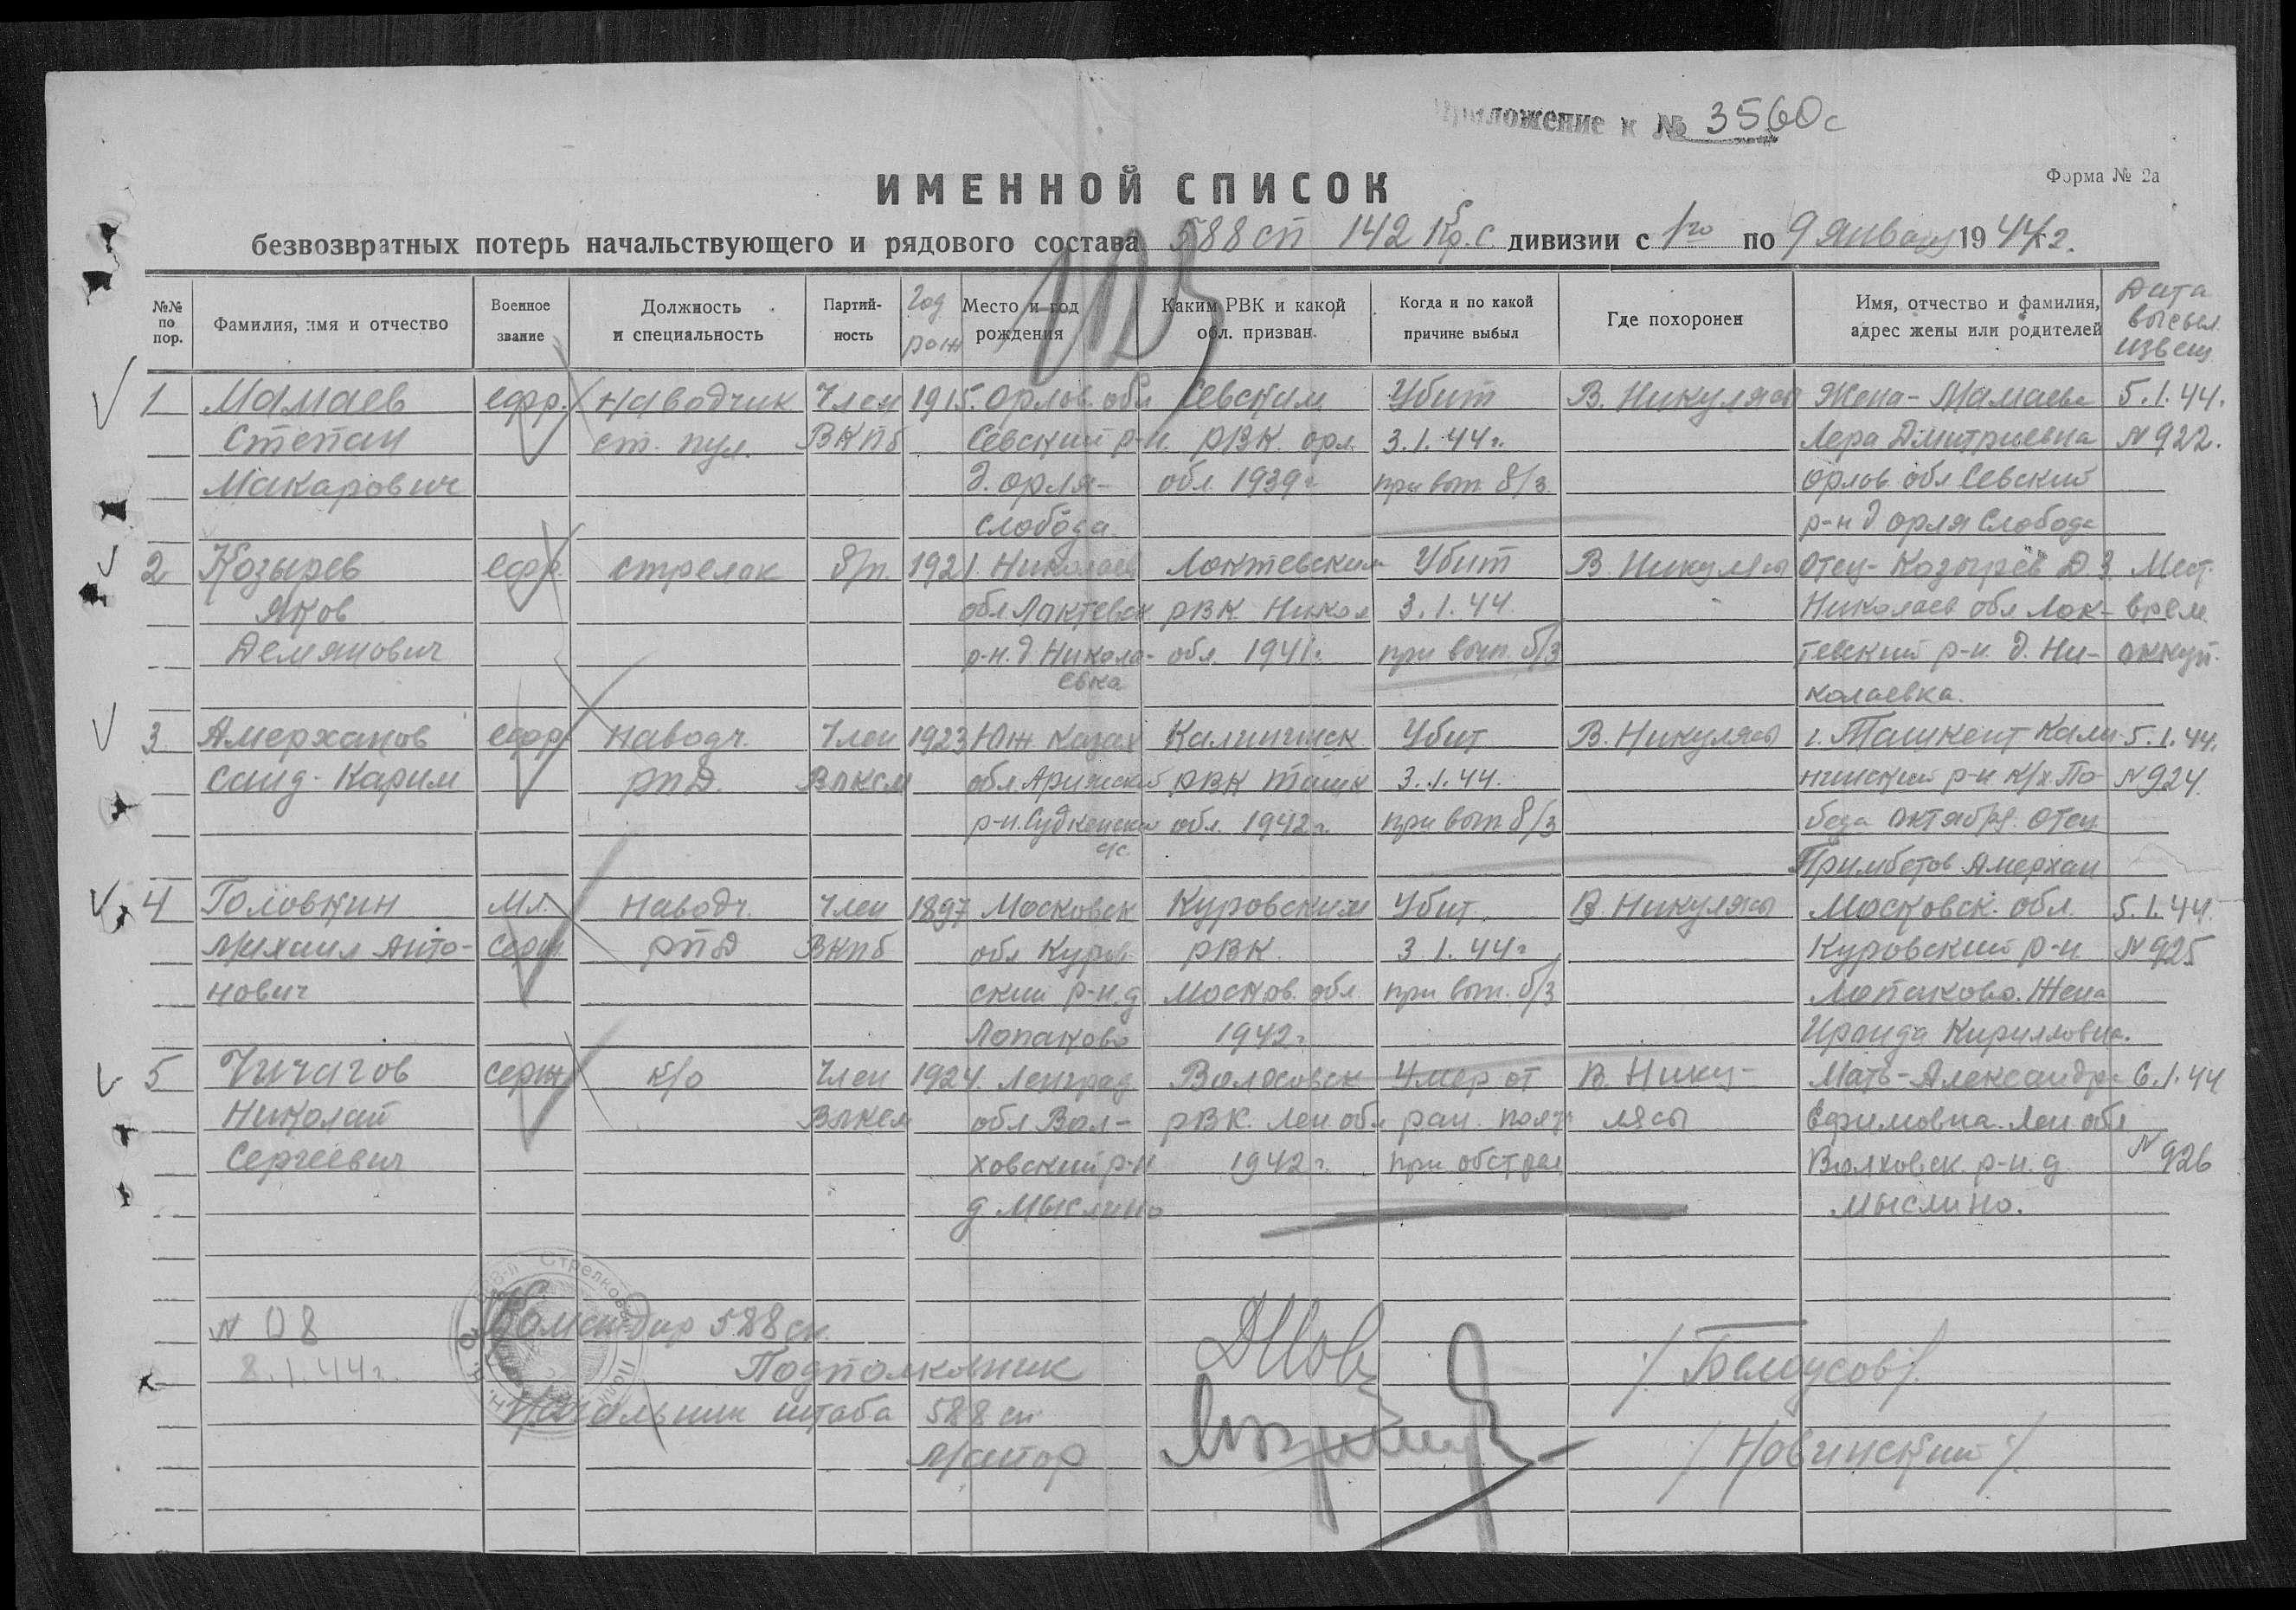 Приложение к № 3560с
Форма № 2а
ИМЕННОЙ СПИСОК
безвозвратных потерь начальствующего и рядового состава 588 сп 142 Кр.с. дивизии с 1го по 9 января 1944 г.
№№ по пор.
Фамилия, имя и отчество
Военное звание
Должность и специальность
Партий-ность
Год рож
Место и год рождения
Каким РВК и какой обл. призван.
Когда и по какой причине выбыл
Где похоронен
Имя, отчество и фамилия, адрес жены или родителей
Дата высыл. извещ.
1 Мамаев ефр. наводчик Член 1915. Орлов. обл Севским Убит В. Никулясы Жена - Мамаева 5.1.44.
Степан ст. пул. ВКПб Севский р-н. РВК орл. 3.1.44г. Лера Дмитриевна №922.
Макарович д. Орля- обл. 1939г при вып б/з Орлов обл Севский
слобода р-н д орля Слобода
2 Козырев ефр. стрелок б/п. 1921. Николаев Локтевским Убит В Никулясы отец - Козырев Д.З Мест.
Яков обл Локтевск РВК Никол 3.1.44. Николаев обл Лок- врем
Демянович р-н. д Никола- обл 1941г. при вып. б/з тевский р-н. д. Ни- оккуп.
евка колаевка.
3 Амерханов ефр наводч. Член 1923 Юж Казах Калининск Убит В. Никулясы г. Ташкент Кали- 5.1.44.
Саид-Карим РПД. ВЛКСМ обл Арысский РВК Ташк 3.1.44. нинский р-н к/х По- №924.
р-н. обл. 1942г. при вып б/з беда октября. Отец
с/с. Примбетов Амерхан
4 Головкин Мл. наводч. Член 1897 Московск Куровским Убит В. Никулясы Московск. обл. 5.1.44.
Михаил Анто- серж РПД ВКПб обл Куров- РВК. 3.1.44г Куровский р-н. №925
нович ский р-н.д Москов. обл. при вып. б/з Лопаково. Жена
Лопаково 1942г. Ираида Кирилловна.
5 Чичагов серж к/о Член 1924. Ленград Волховск Умер от В. Нику- Мать - Александра 6.1.44
Николай ВЛКСМ обл Вол- РВК. Лен обл ран. получ лясы Ефимовна. Лен. обл
Сергеевич ховский р-н 1942г. при обстрел Волховск. р-н. д №926
д Мыслино Мыслино.
№ 08
8.1.44г.
Командир 588 сп.
Подполковник /Белоусов/.
Начальник штаба 588 сп
Майор /Новинский/.